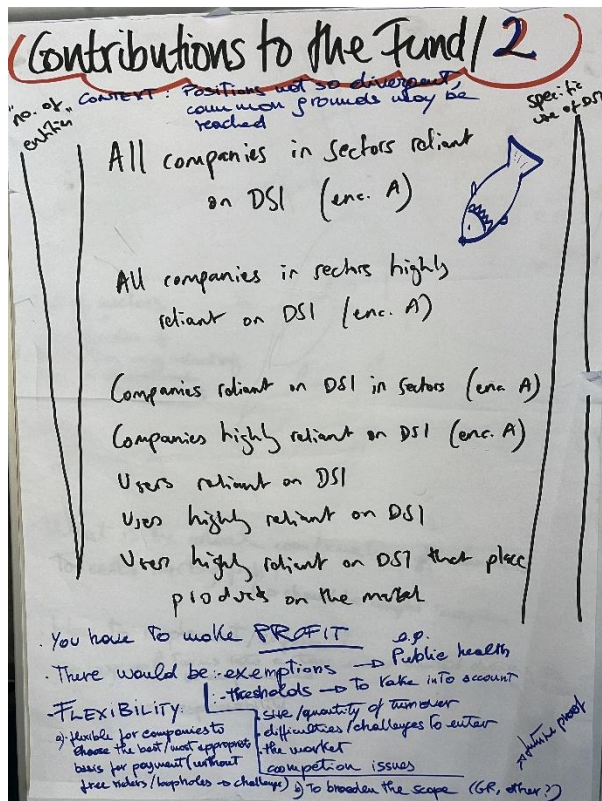 Contributions to the Fund / 2
CONTEXT: Positions not so divergent,
common grounds may be
reached
"no. of
entities"
specific
use of DSI
All companies in sectors reliant
on DSI (enc. A)
All companies in sectors highly
reliant on DSI (enc. A)
Companies reliant on DSI in sectors (enc. A)
Companies highly reliant on DSI (enc. A)
Users reliant on DSI
Uses highly reliant on DSI
Users highly reliant on DSI that place
products on the market
· You have to make PROFIT
· There would be: - exemptions → e.g. Public health
- thresholds → To take into account
size/quantity of turnover
difficulties/challenges to enter
the market
competion issues
- FLEXIBILITY:
a) flexible for companies to
choose the best/most appropriate
basis for payment (without
free riders/loopholes → challenge)
b) To broaden the scope (GR, other?)
→ future proof